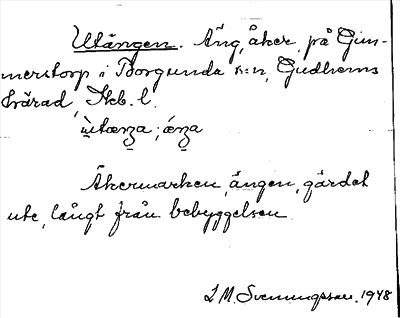 Utängen. Äng, åker, på Gun-
merstorp i Borgunda s:n, Gudhems
härad, Skb. l.
ùtæŋa; æŋa
Åkermarken, ängen, gärdet
ute, långt från bebyggelsen.
L M. Svenungsson. 1948